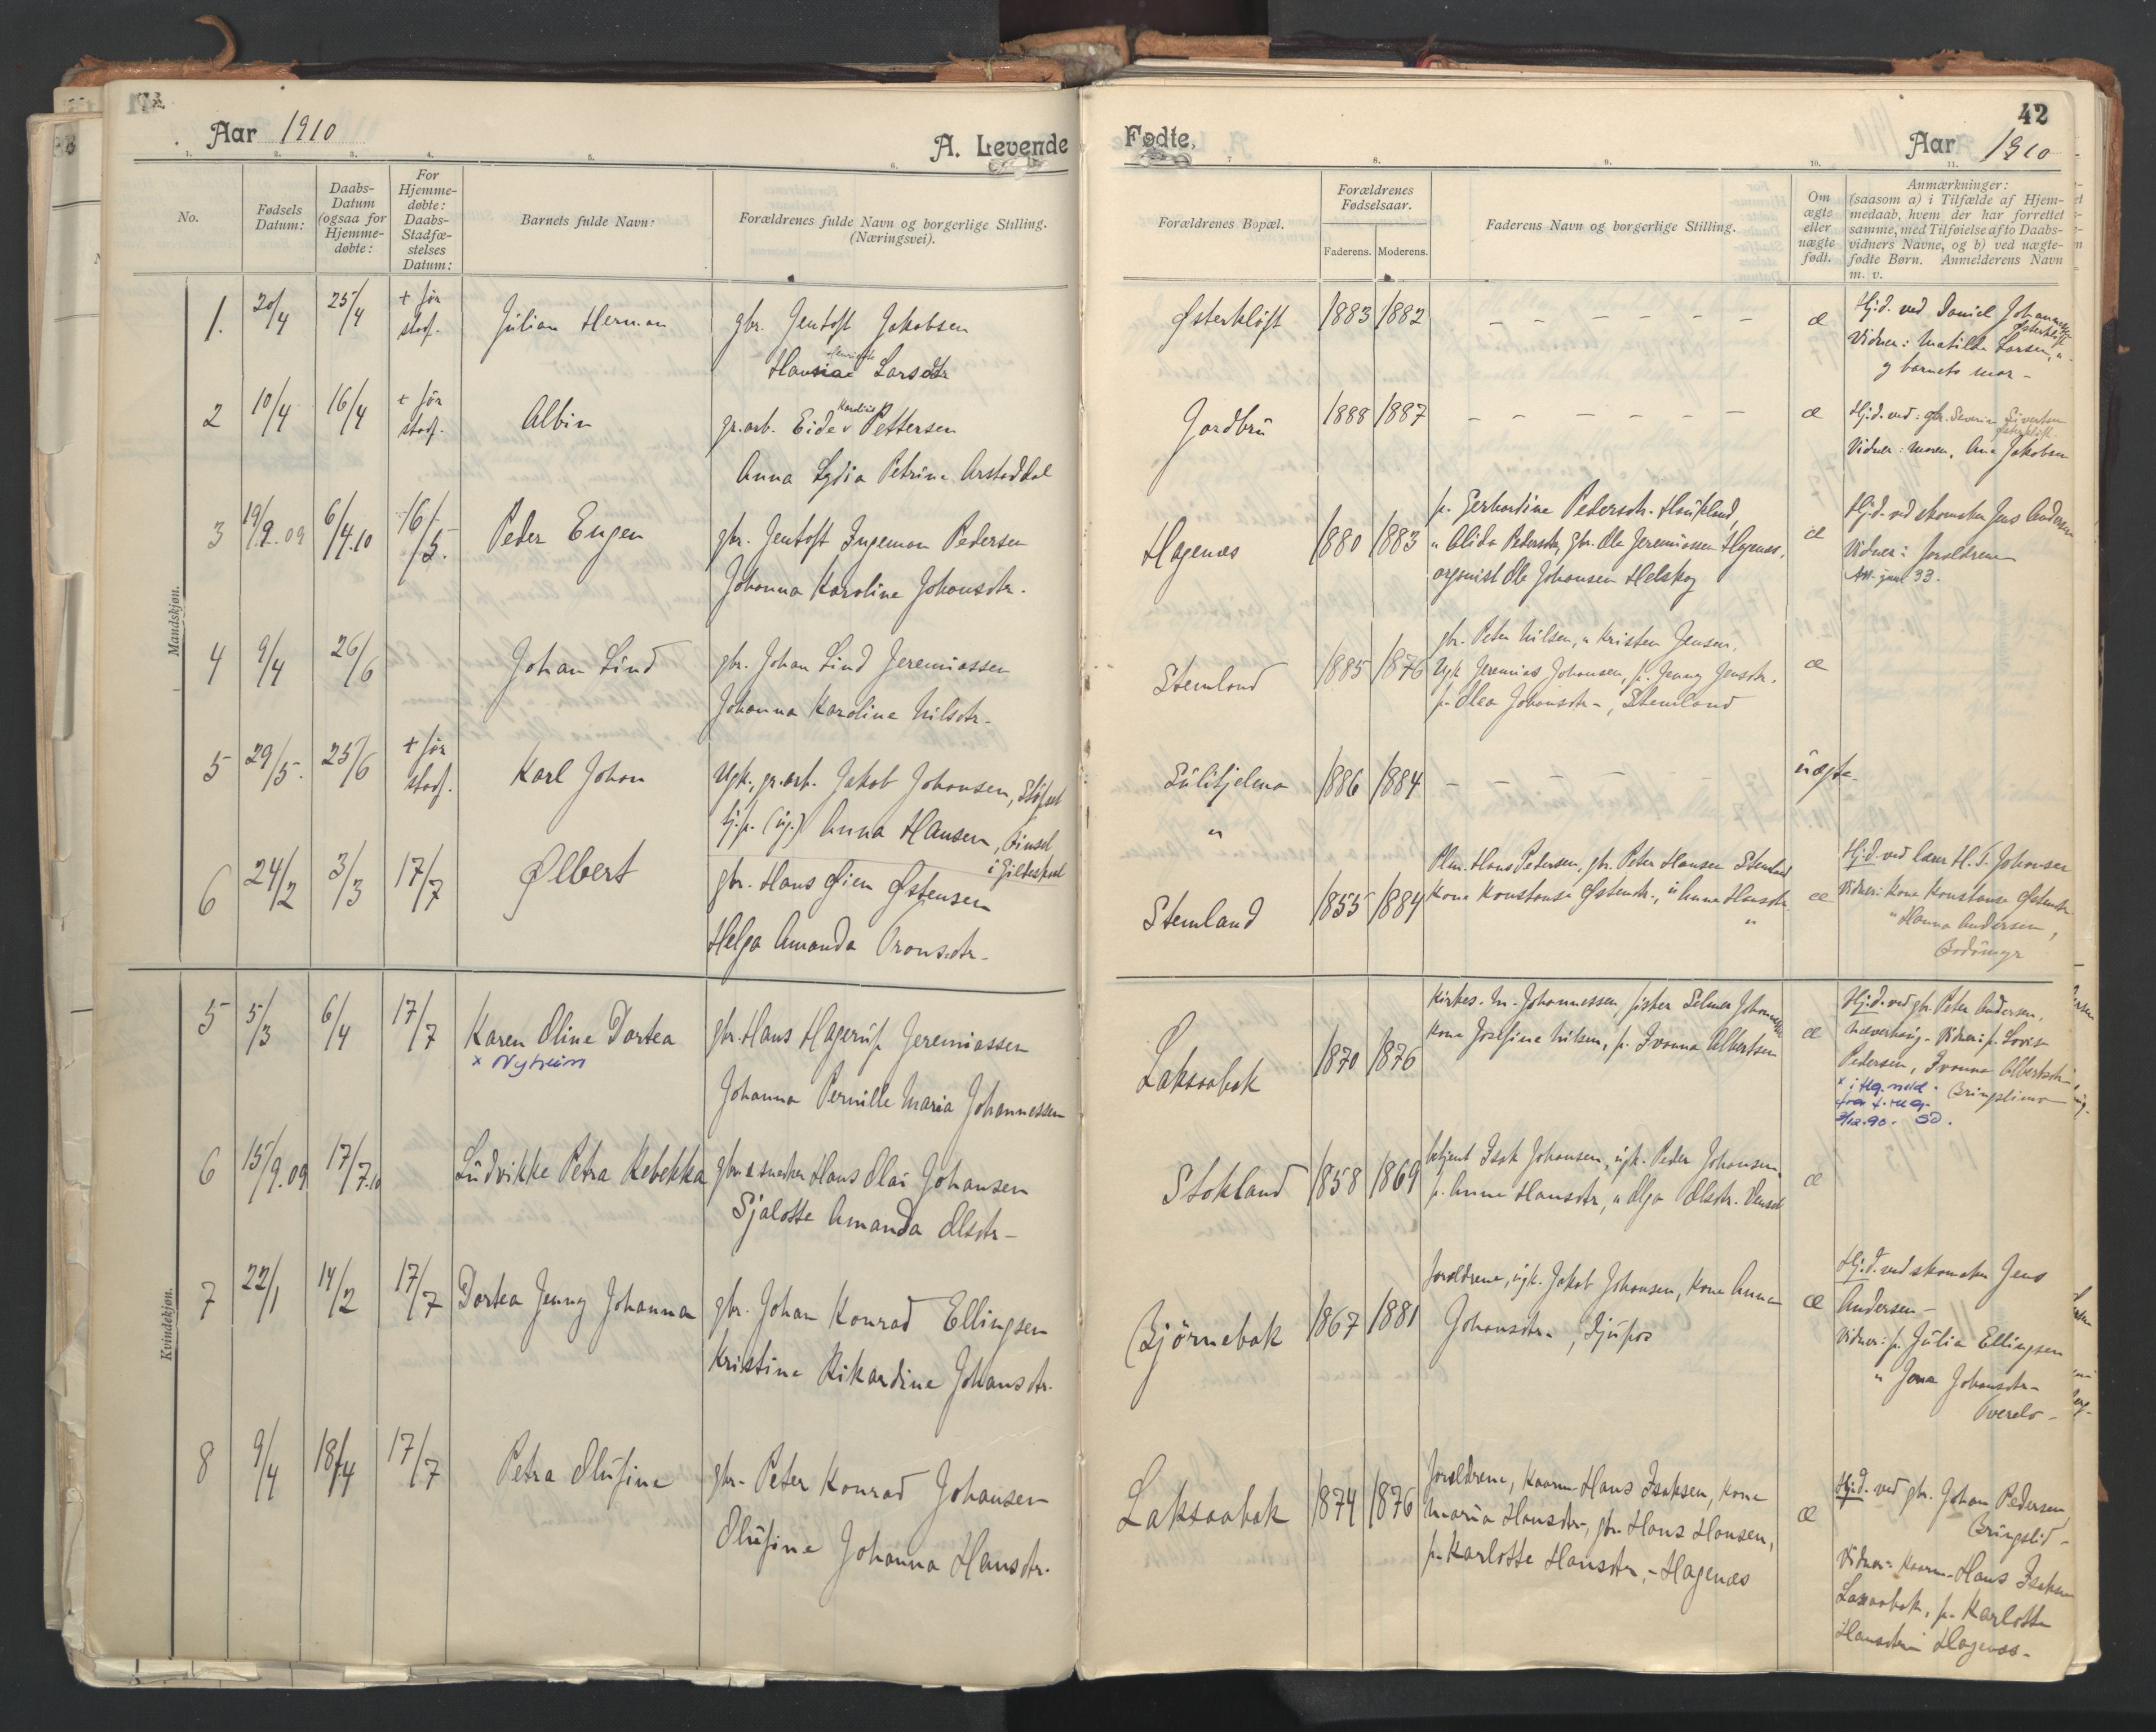 Aar 1910
A. Levende
1. 2. 3. 4. 5. 6.
No.
Fødsels Datum:
Daabs-Datum (ogsaa for Hjemme-døbte:
For Hjemme-døbte: Daabs-Stadfæ-stelses Datum:
Barnets fulde Navn:
Forældrenes fulde Navn og borgerlige Stilling. (Næringsvei).
Mandskjøn.
1. 20/4 25/4 + før stadf. Julian Herman gbr. Jentoft Jakobsen
Henriette
Hansine Larsdtr
2 10/4 16/4 + før stadf. Albin gr.arb. Eide v Pettersen
Anna Lydia Petrine Arstaddal
3 19/9.09 6/4.10 16/5. Peder Eugen gbr. Jentoft Ingeman Pedersen
Johanna Karoline Johansdtr.
4 9/4 26/6 Johan Lind gbr. Johan Lind Jeremiassen
Johanna Karoline Nilsdtr.
5 29/5. 25/6 + før stadf. Karl Johan Ugk. gr.arb. Jakob Johansen,
tj.p. (ug.) Anna Hansen,
i Gildeskaal
6 24/2 3/3 17/7 Ølbert gbr. Hans Øien Østensen
Helga Amanda Aronsdtr.
Kvindekjøn.
5 5/3 6/4 17/7 Karen Oline Dortea gbr. Hans Hagerup Jeremiassen
x Nyheim
Johanna Pernille Maria Johannessen
6 15/9.09 17/7.10 Ludvikke Petra Rebekka gbr. & snekker Hans Olai Johansen
Sjalotte Amanda Olsdtr.
7 22/1 14/2 17/7 Dortea Jenny Johanna gbr. Johan Konrad Ellingsen
Kristine Rikardine Johansdtr.
8 9/4 18/4 17/7 Petra Olufine gbr. Peter Konrad Johansen
Olufine Johanna Hansdtr.
42
Fødte,
Aar 1910
7 8. 9. 10. 11.
Forældrenes Bopæl.
Forældrenes Fødselsaar.
Faderens. Moderens.
Faderens Navn og borgerlige Stilling.
Om ægte eller uægte født.
Anmærkninger:
(saasom a) i Tilfælde af Hjem-
medaab, hvem der har forrettet
samme, med Tilføielse af to Daabs-
vidners Navne, og b) ved uægte-
fødte Børn. Anmelderens Navn
m. v.
Østerkløft 1883 1882 – – – – – – – æ Hj.d. ved Daniel Johannessen
Østerkløft
Vidner: Matilde Larsen, "
og barnets mor –
Jordbru 1888 1887 – – – – – – – æ Hj.d. ved: gbr. Severin Sivertsen
Østerkløft.
Vidner: moren, Ane Jakobsen
Hagenæs 1880 1883 p. Gerhardine Pedersdtr.
" Alida Pedersdtr, gbr. Ole Jeremiassen Hagenæs,
organist Ole Johansen Helskog
æ Hj.d. ved skomaker Jens Andersen
Vidner: forældrene
Att. jan. 33.
Stemland 1885 1876 gbr. Peter Nilsen, " Kristen Jensen,
Ugk Jeremias Johansen, p. Jenny Jensdtr.
p. Olea Johansdtr –, Stemland
æ
Sulitjelma 1886 1884 – – – – – – uægte.
"
Stemland 1855 1884 Hans Pedersen, gbr. Peter Hansen Stemland
Kone Konstanse Østensdtr., " Anne Hansdtr.
"
æ Hj.d. ved lærer H. T. Johansen
Vidner: Kone Konstanse Østensdtr
" Hanna Andersen,
Laksaabak 1870 1876 Kirkes. M. Johannessen, fisker Selmer Johannessen
Kone Josefine Nilsen, p. Ivanna Albertsen
æ Hj.d. ved gbr. Peter Andersen,
Vidner: p. Lovise
Pedersen, Ivanna Albertsdtr –
Bringslimo
3/12.90. SD.
Stokland 1858 1869 betjent Isak Johansen, ugk. Peder Johansen,
p. Anne Hansdtr, " Olga Olsdtr.
æ
Bjørnebak 1867 1881 forældrene, ugk. Jakob Johansen, Kone Anna
Johansdtr –, Djupos
æ Hj.d. ved skomaker Jens
Andersen –
Vidner: p. Julia Ellingsen
" Jona Johansdtr –
Tverelv –
Laksaabak 1874 1876 forældrene, Kaarm. Hans Isaksen, Kone
Maria Hansdtr, gbr. Hans Hansen,
p. Karlotte Hansdtr, – Hagenæs
æ Hj.d. ved gbr. Johan Pedersen,
Bringslid –
Vidner: Kaarm. Hans Isaksen
Laxaabak, p. Karlotte
Hansdtr – Hagenæs –